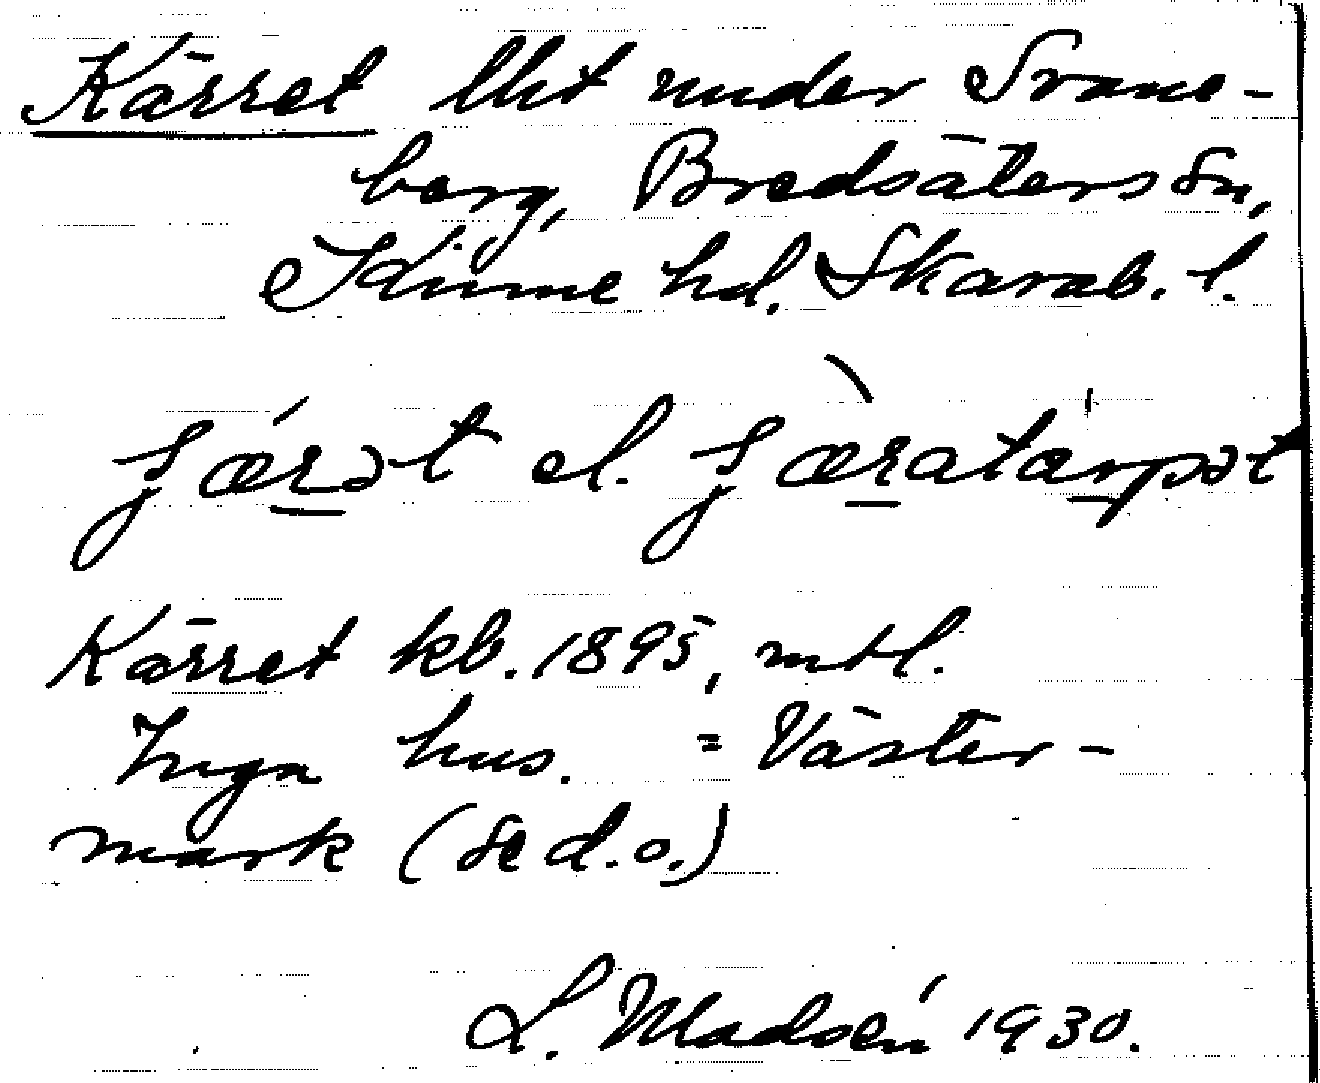 Kärret lht under Svane-
berg, Bredsäters sn,
Kinne hd. Skarab. l.
ʒæ̀rət el. ʒæratårpət
Kärret kb. 1895, mtl.
Inga hus. = Väster-
mark (se d.o.)
L. Madsén 1930.